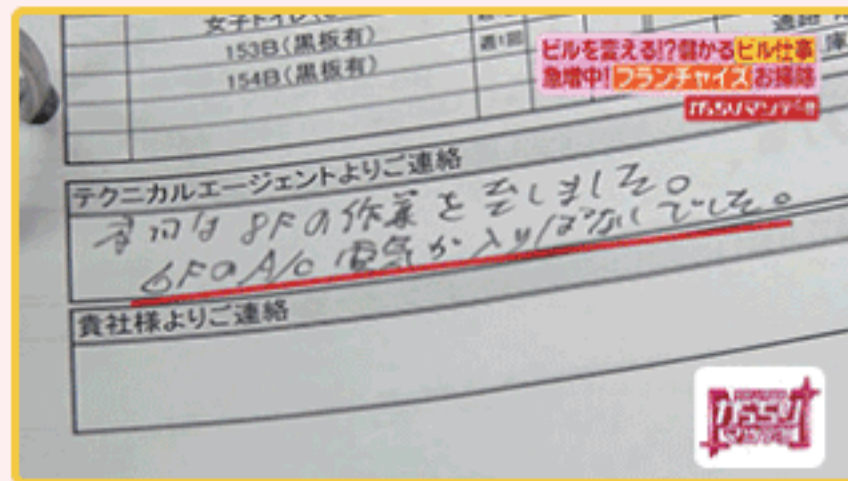 女子トイレ
153B(黒板有)
週1回
154B(黒板有)
ビルを変える!?儲かるビル仕事
急増中!フランチャイズお掃除
がっちりマンデー!!
テクニカルエージェントよりご連絡
8Fの作業を
しました。
6FのA/C 電気が入りぱなしでした。
貴社様よりご連絡
がっちり
マンデー!!